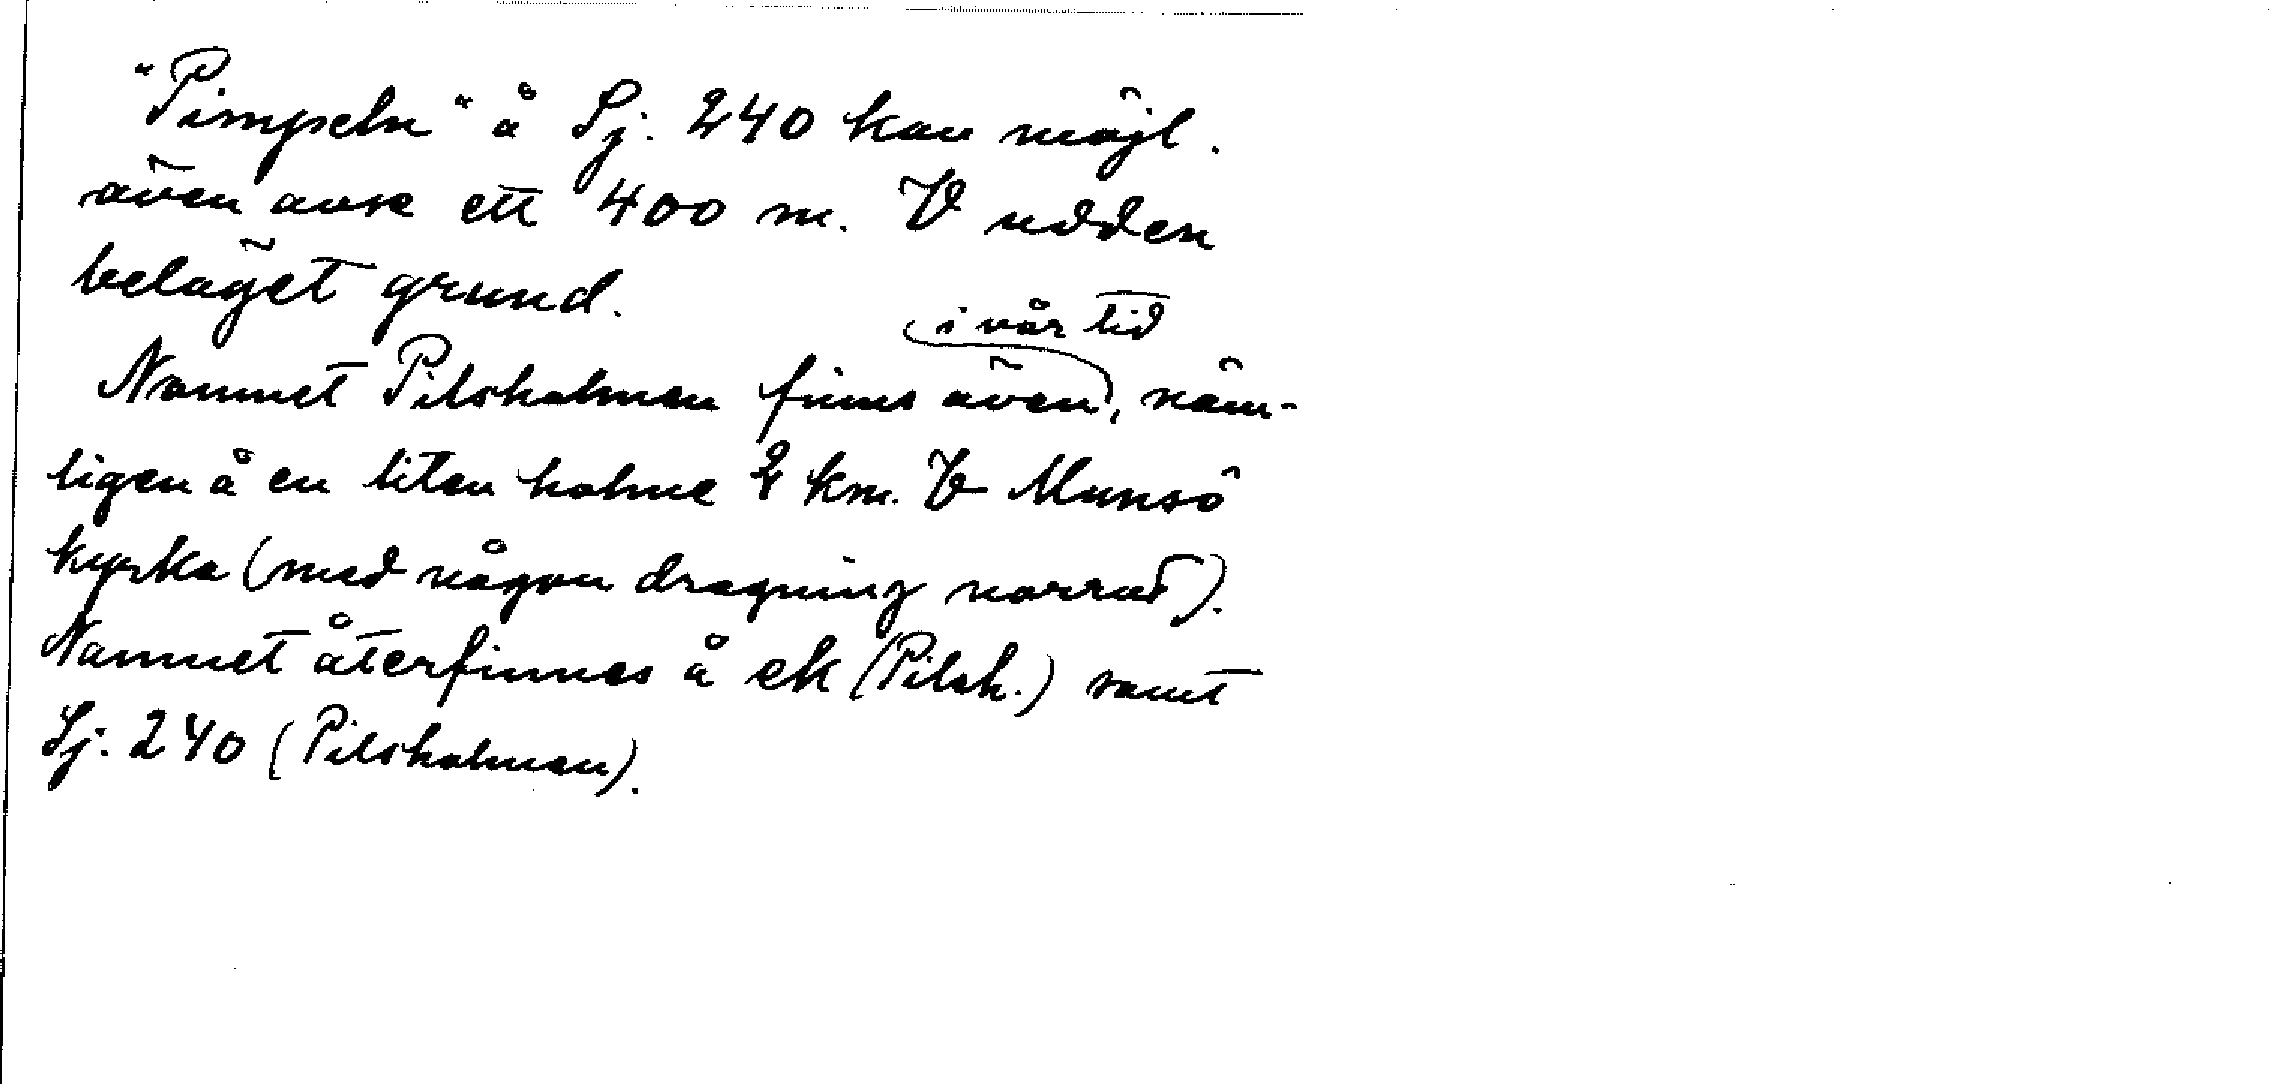 "Pimpeln" å Sj. 240 kan möjl.
även avse ett 400 m. V udden
beläget grund.
i vår tid
Namnet Pilsholmen finns även, näm-
ligen å en liten holme 2 km. V Munsö
kyrka (med någon dragning norrut).
Namnet återfinnes å ek (Pilsh.) samt
Sj. 240 (Pilsholmen).